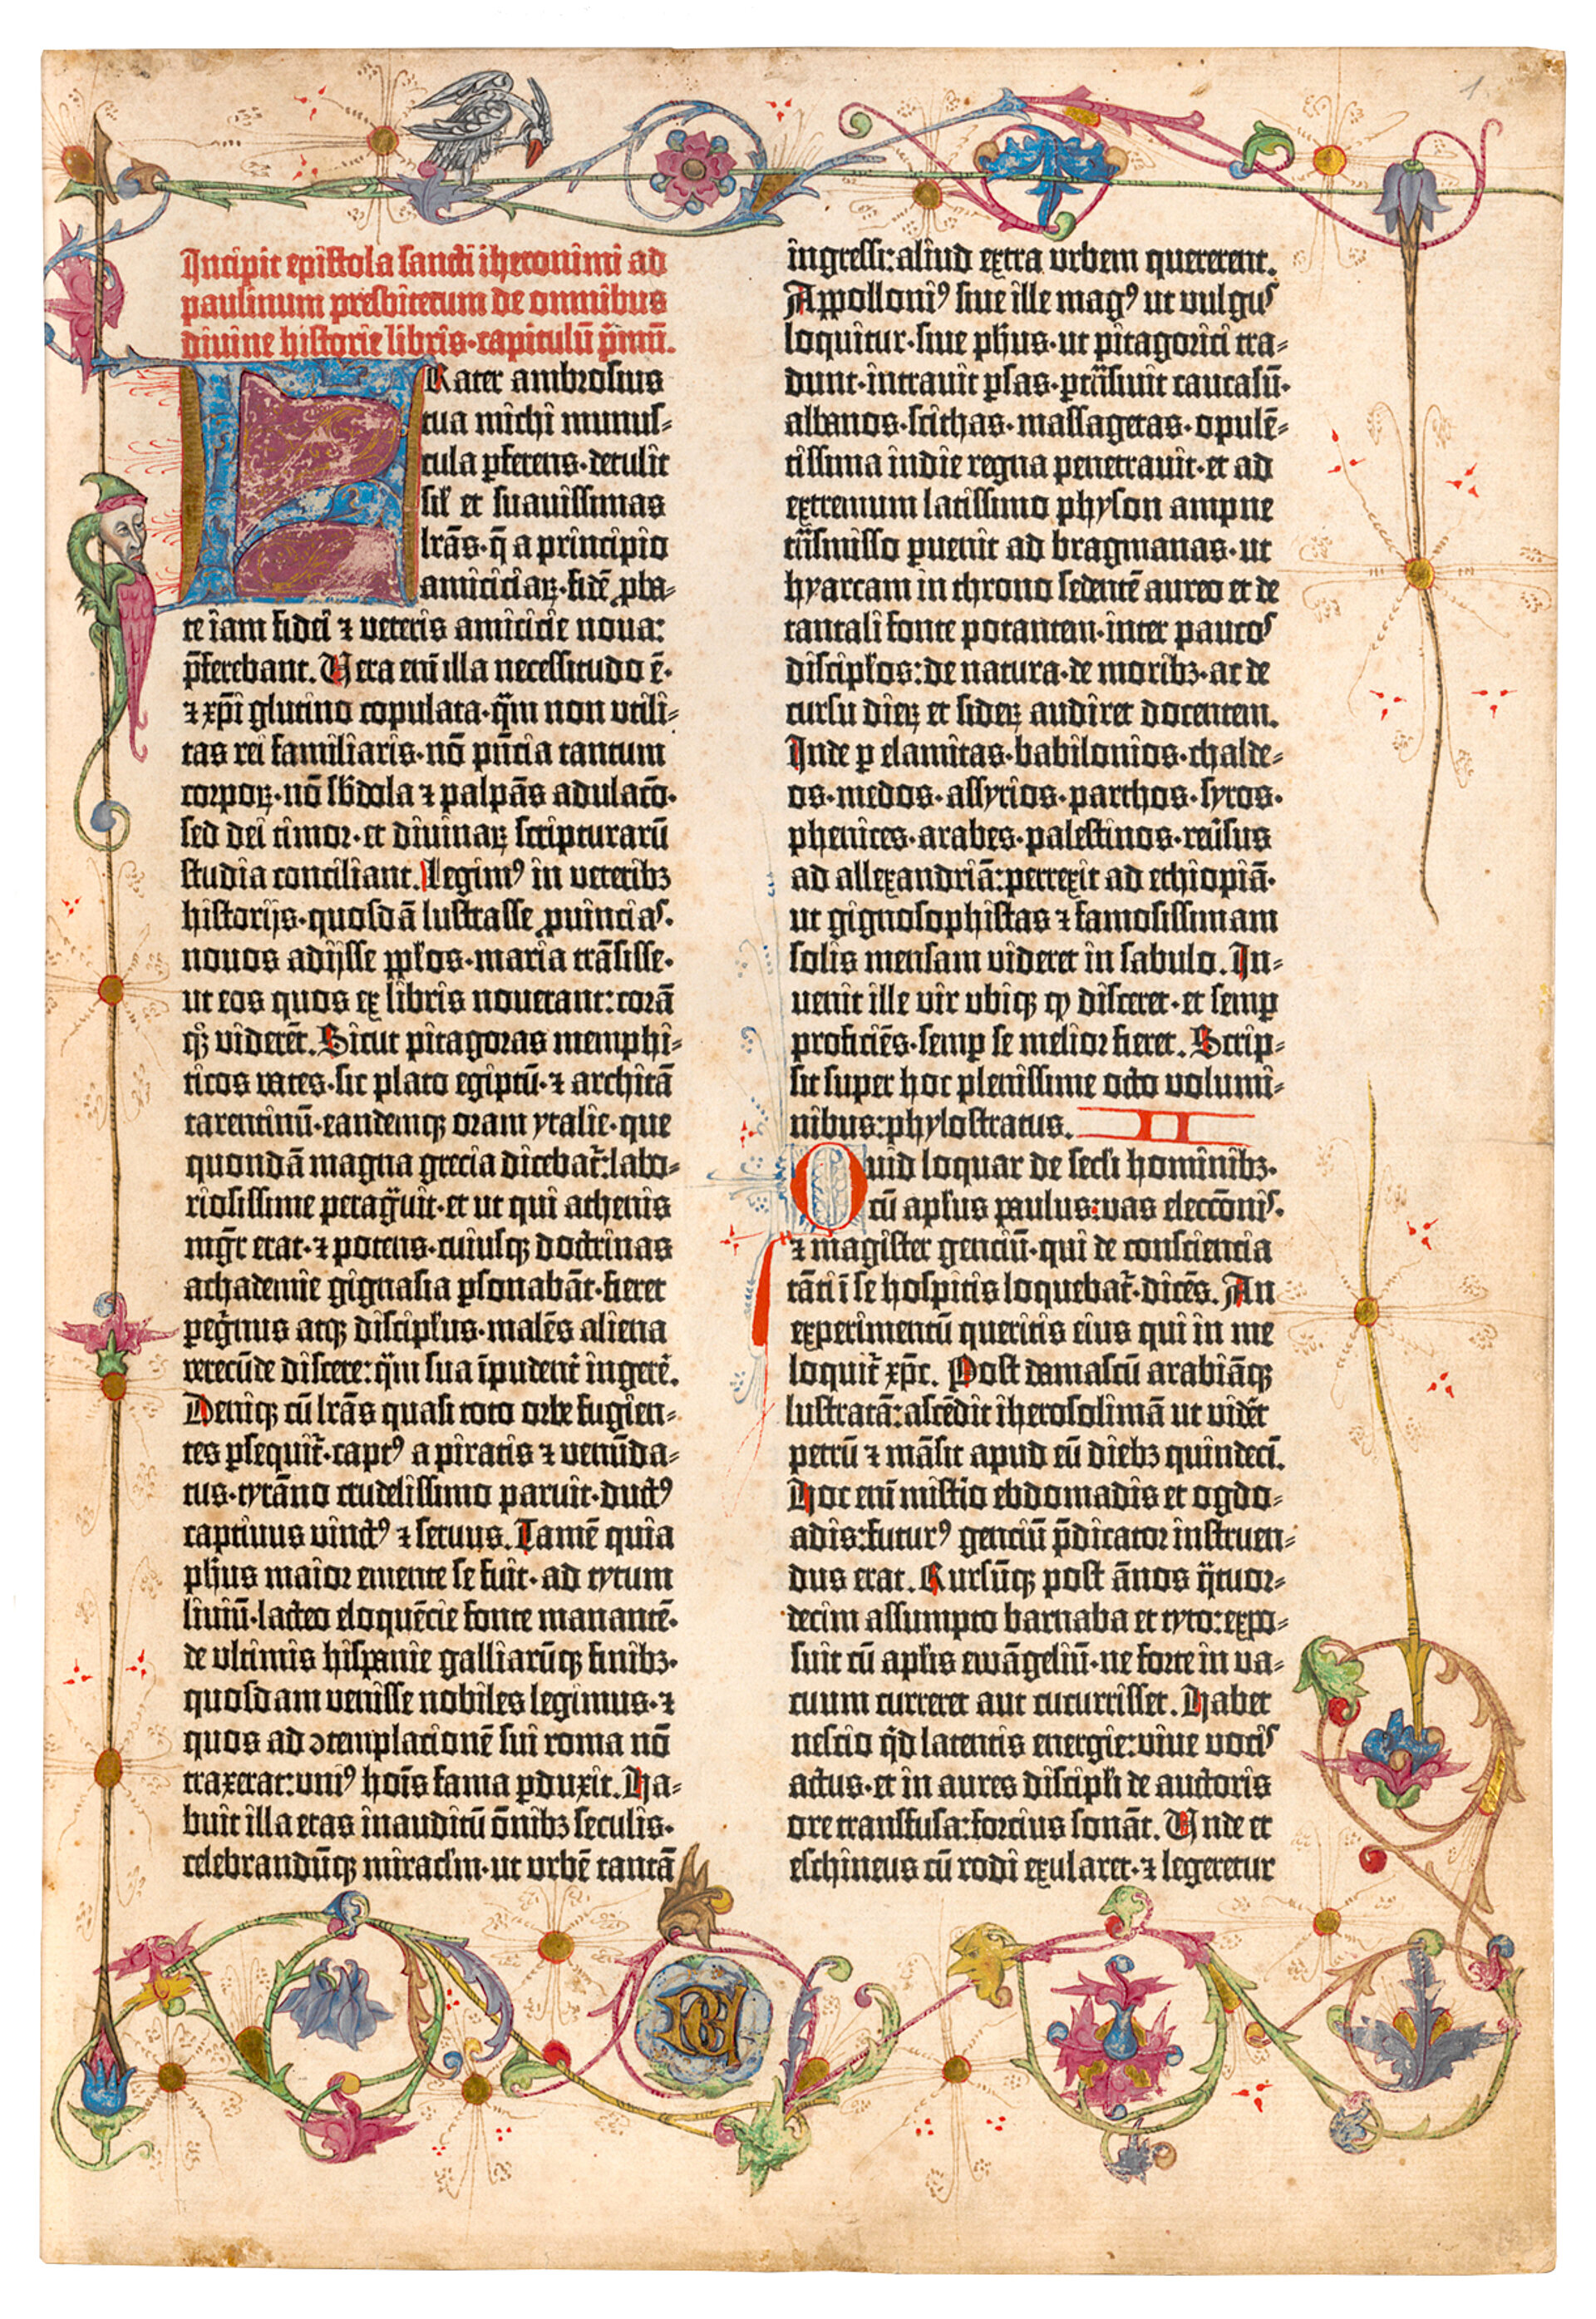 Incipit epistola sancti iheronimi ad
paulinum presbiterum de omnibus
divine historie libris·capitulū p̄mū.
FRater ambrosius
tua michi munus-
cula ꝑferens·detulit
sil̛ et suavissimas
lrās·q̄ a principio
amiciciaꝝ·fidē ꝓba-
te iam fidei ⁊ veteris amicicie nova:
p̄ferebant. Vera eni̅ illa necessitudo ē·
⁊ xp̄i glutino copulata·q̄m non utili-
tas rei familiaris·nō pn̄cia tantum
corpoꝝ·nō sb̛dola ⁊ palpās adulac̄o·
sed dei timor·et divinaꝝ scripturarū
studia conciliant. Legimꝰ in veteribꝫ
historijs·quosdā lustrasse ꝓvincias·
novos adijsse ꝓpl̛os·maria trāsisse·
ut eos quos ex libris noverant: corā
qꝫ viderēt. Sicut pitagoras memphi-
ticos vates·sic plato egiptū·⁊ architā
tarentinū·eandemqꝫ oram ytalie·que
quondā magna grecia dicebat̄: labo-
riosissime peragͣvit·et ut qui athenis
mgr̄ erat·⁊ potens·cuiusqꝫ doctrinas
achademie gignasia ꝑsonabāt·fieret
peg̛nus atqꝫ discipl̛us·malēs aliena
verecūde discere: q̄m sua īpudent̄ ingerē̛.
Deniqꝫ cū lrās quasi toto orbe fugien-
tes ꝑsequit̄·captꝰ a piratis ⁊ venūda-
tus·tyrāno crudelissimo paruit·ductꝰ
captivus vinctꝰ ⁊ servus. Tamē quia
ph̛us maior emente se fuit·ad tytum
liviū·lacteo eloquēcie fonte manantē·
de ultimis hispanie galliarūqꝫ finibꝫ·
quosdam venisse nobiles legimus·⁊
quos ad ↄtemplationē sui roma nō
traxerat: uniꝰ hoīs fama ꝑduxit. Ha-
buit illa etas inauditū ōnibꝫ seculis·
celebrandūqꝫ miraclm̄·ut urbē tantā
ingressi: aliud extra urbem quererent.
Appolloniꝰ sive ille magꝰ ut vulgus
loquitur·sive ph̛us·ut pitagorici tra-
dunt·intravit ꝑsas·ꝑtrāsivit caucasū·
albanos·scithas·massagetas·opulē-
tissima indie regna penetravit·et ad
extremum latissimo physon ampne
trāsmisso ꝑvenit ad bragmanas·ut
hyarcam in throno sedentē aureo et de
tantali fonte potantem·inter paucos
discipl̛os: de natura·de moribꝫ·ac de
cursu dieꝝ et sideꝝ audiret docentem.
Inde ꝑ elamitas·babilonios·chalde-
os·medos·assyrios·parthos·syros·
phenices·arabes·palestinos·rev̛sus
ad allexandriā: perrexit ad ethiopiā·
ut gignosophistas ⁊ famosissimam
solis mensam videret in sabulo. In-
venit ille vir ubiqꝫ qꝺ disceret·et semꝑ
proficiēs·semꝑ se melior fieret. Scrip-
sit super hoc plenissime octo volumi-
nibus: phylostratus. II
Quid loquar de secl̛i hominibꝫ·
cū apl̛us paulus: vas elecc̄onis·
⁊ magister genciū·qui de consciencia
tāti ī se hospitis loquebat̄·dicēs. An
experimentū queritis eius qui in me
loquit̄ xp̄c. Post damascū arabiāqꝫ
lustratā: ascēdit iherosolimā ut vidēt
petrū ⁊ māsit apud eū diebꝫ quindecī.
Hoc eni̅ mist̛io ebdomadis et ogdo-
adis: futurꝰ genciū p̄dicator instruen-
dus erat. Rursūqꝫ post ānos q̄tuor-
decim assumpto barnaba et tyto: expo-
suit cū apl̛is ewāgeliū·ne forte in va-
cuum curreret aut cucurrisset. Habet
nescio q̛d latentis energie: vive vocis
actus·et in aures discipl̛i de auctoris
ore transfusa: forcius sonāt. Unde et
eschineus cū rodi exularet·⁊ legeretur